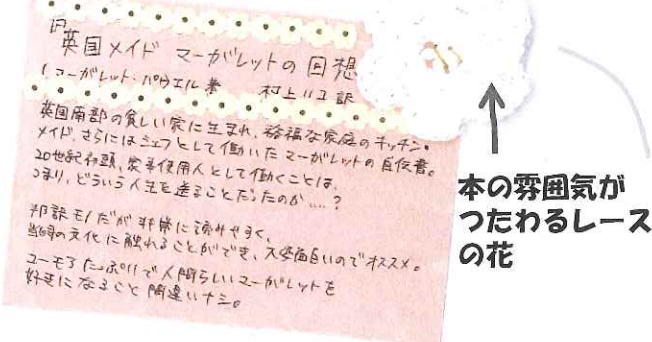 英国メイド マーガレットの回想
マーガレット・パウエル 著 村上リコ 訳
英国南部の貧しい家に生まれ、裕福な家庭のキッチン・
メイド、さらにはシェフとして働いたマーガレットの自伝書。
20世紀初頭、家事使用人として働くことは、
つまり、どういう人生を送ることだったのか…?
邦訳モノだが非常に読みやすく、
当時の文化に触れることができ、大変面白いのでオススメ。
ユーモアたっぷりで人間らしいマーガレットを
好きになること間違いナシ。
本の雰囲気が
つたわるレース
の花